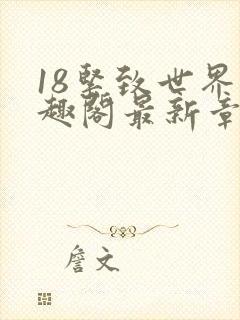 18紧致世界
趣阁最新章
詹文